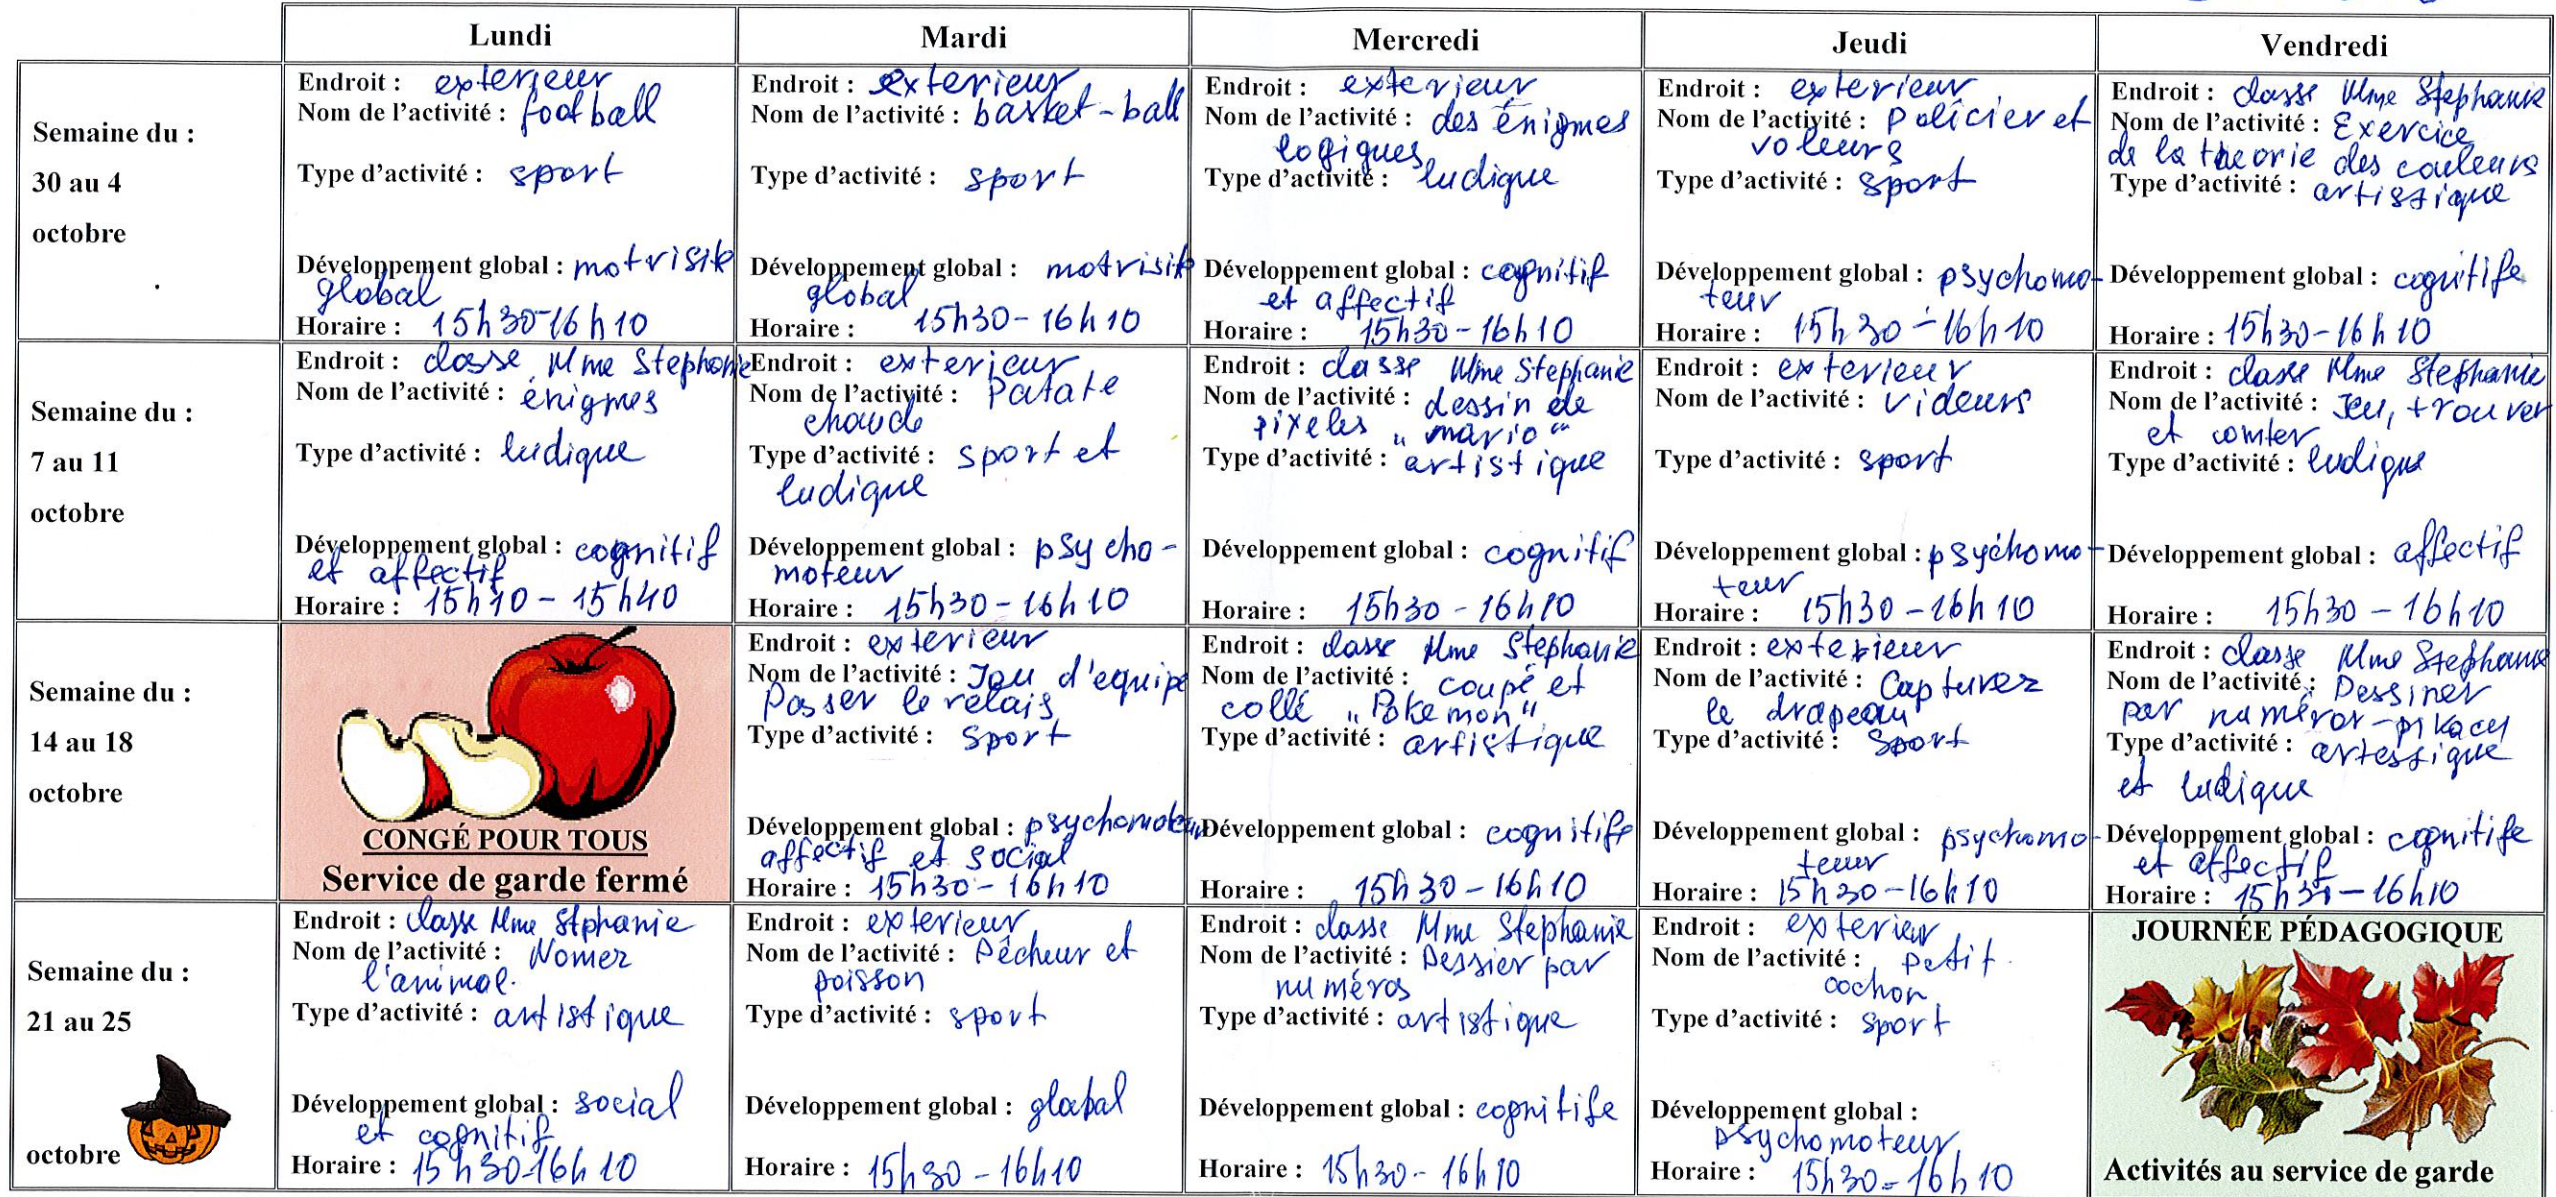 Lundi Mardi Mercredi Jeudi Vendredi
Semaine du :
30 au 4
octobre
Endroit : exterieur
Nom de l'activité : football
Type d'activité : sport
Développement global : motrisite
global
Horaire : 15h30-16h10
Endroit : exterieur
Nom de l'activité : basket-ball
Type d'activité : sport
Développement global : motrisite
global
Horaire : 15h30-16h10
Endroit : exterieur
Nom de l'activité : des énigmes
logiques
Type d'activité : ludique
Développement global : cognitif
et affectif
Horaire : 15h30-16h10
Endroit : exterieur
Nom de l'activité : Policier et
voleurs
Type d'activité : sport
Développement global : psychomo-
teur
Horaire : 15h30-16h10
Endroit : classe Mme Stephanie
Nom de l'activité : Exercice
de la theorie des couleurs
Type d'activité : artistique
Développement global : cognitife
Horaire : 15h30-16h10
Semaine du :
7 au 11
octobre
Endroit : classe Mme Stephanie
Nom de l'activité : énigmes
Type d'activité : ludique
Développement global : cognitif
et affectif
Horaire : 15h10-15h40
Endroit : exterieur
Nom de l'activité : Patate
chaude
Type d'activité : sport et
ludique
Développement global : psycho-
moteur
Horaire : 15h30-16h10
Endroit : classe Mme Stephanie
Nom de l'activité : dessin de
pixeles „mario“
Type d'activité : artistique
Développement global : cognitif
Horaire : 15h30-16h10
Endroit : exterieur
Nom de l'activité : videurs
Type d'activité : sport
Développement global : psychomo-
teur
Horaire : 15h30-16h10
Endroit : classe Mme Stephanie
Nom de l'activité : Jeu, trouver
et comter
Type d'activité : ludique
Développement global : affectif
Horaire : 15h30-16h10
Semaine du :
14 au 18
octobre
CONGÉ POUR TOUS
Service de garde fermé
Endroit : exterieur
Nom de l'activité : Jeu d'equipe
Passer le relais
Type d'activité : sport
Développement global : psychomoteur
affectif et social
Horaire : 15h30-16h10
Endroit : classe Mme Stephanie
Nom de l'activité : coupé et
collé „Pokemon“
Type d'activité : artistique
Développement global : cognitife
Horaire : 15h30-16h10
Endroit : exterieur
Nom de l'activité : Capturez
le drapeau
Type d'activité : sport
Développement global : psychomo-
teur
Horaire : 15h30-16h10
Endroit : classe Mme Stephanie
Nom de l'activité : Dessiner
par numéror-pikacy
Type d'activité : artessique
et ludique
Développement global : cognitife
et affectif
Horaire : 15h30-16h10
Semaine du :
21 au 25
octobre
Endroit : classe Mme Stphanie
Nom de l'activité : Nomez
l'animal.
Type d'activité : artistique
Développement global : social
et cognitif
Horaire : 15h30-16h10
Endroit : exterieur
Nom de l'activité : Pêcheur et
poisson
Type d'activité : sport
Développement global : global
Horaire : 15h30-16h10
Endroit : classe Mme Stephanie
Nom de l'activité : Dessier par
numéros
Type d'activité : artistique
Développement global : cognitife
Horaire : 15h30-16h10
Endroit : exterieur
Nom de l'activité : petit
cochon
Type d'activité : sport
Développement global :
psychomoteur
Horaire : 15h30-16h10
JOURNÉE PÉDAGOGIQUE
Activités au service de garde